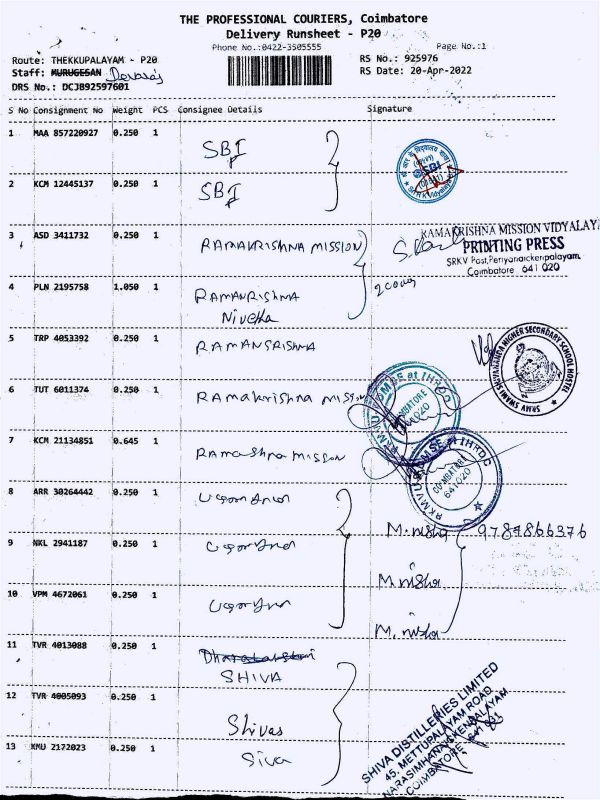 THE PROFESSIONAL COURIERS, Coimbatore
Delivery Runsheet - P20
Phone No.:0422-3505555
Page No.:1
Route: THEKKUPALAYAM - P20
RS No.: 925976
Staff: MURUGESAN Devaraj
RS Date: 20-Apr-2022
DRS No.: DCJB92597601
S No Consignment No Weight PCS Consignee Details Signature
1 MAA 857220927 0.250 1 SBI
SBI
2 KCM 12445137 0.250 1 SBI
3 ASD 3411732 0.250 1 RAMAKRISHNA MISSION
RAMAKRISHNA MISSION VIDYALAYA
PRINTING PRESS
SRKV Post, Periyanaickenpalayam,
Coimbatore 641 020
4 PLN 2195758 1.050 1 RAMANRISHNA
Nivetha
5 TRP 4053392 0.250 1 RAMANSRISHNA
SRMV SWAMI SHIVANANDA HIGHER SECONDARY SCHOOL HOSTEL
6 TUT 6011374 0.250 1 RAmakrishna mission
COIMBATORE
641020
7 KCM 21134851 0.645 1 RAmashna misson
COIMBATORE
641020
8 ARR 30264442 0.250 1
M. nisha 9787866376
9 NKL 2941187 0.250 1
M. nisha
10 VPM 4672061 0.250 1
M. nisha
11 TVR 4013088 0.250 1
SHIVA
12 TVR 4005093 0.250 1 Shivas
13 KMU 2172023 0.250 1 Siva
SHIVA DISTILLERIES LIMITED
45, METTUPALAYAM ROAD,
NARASIMHANAICKENPALAYAM
COIMBATORE